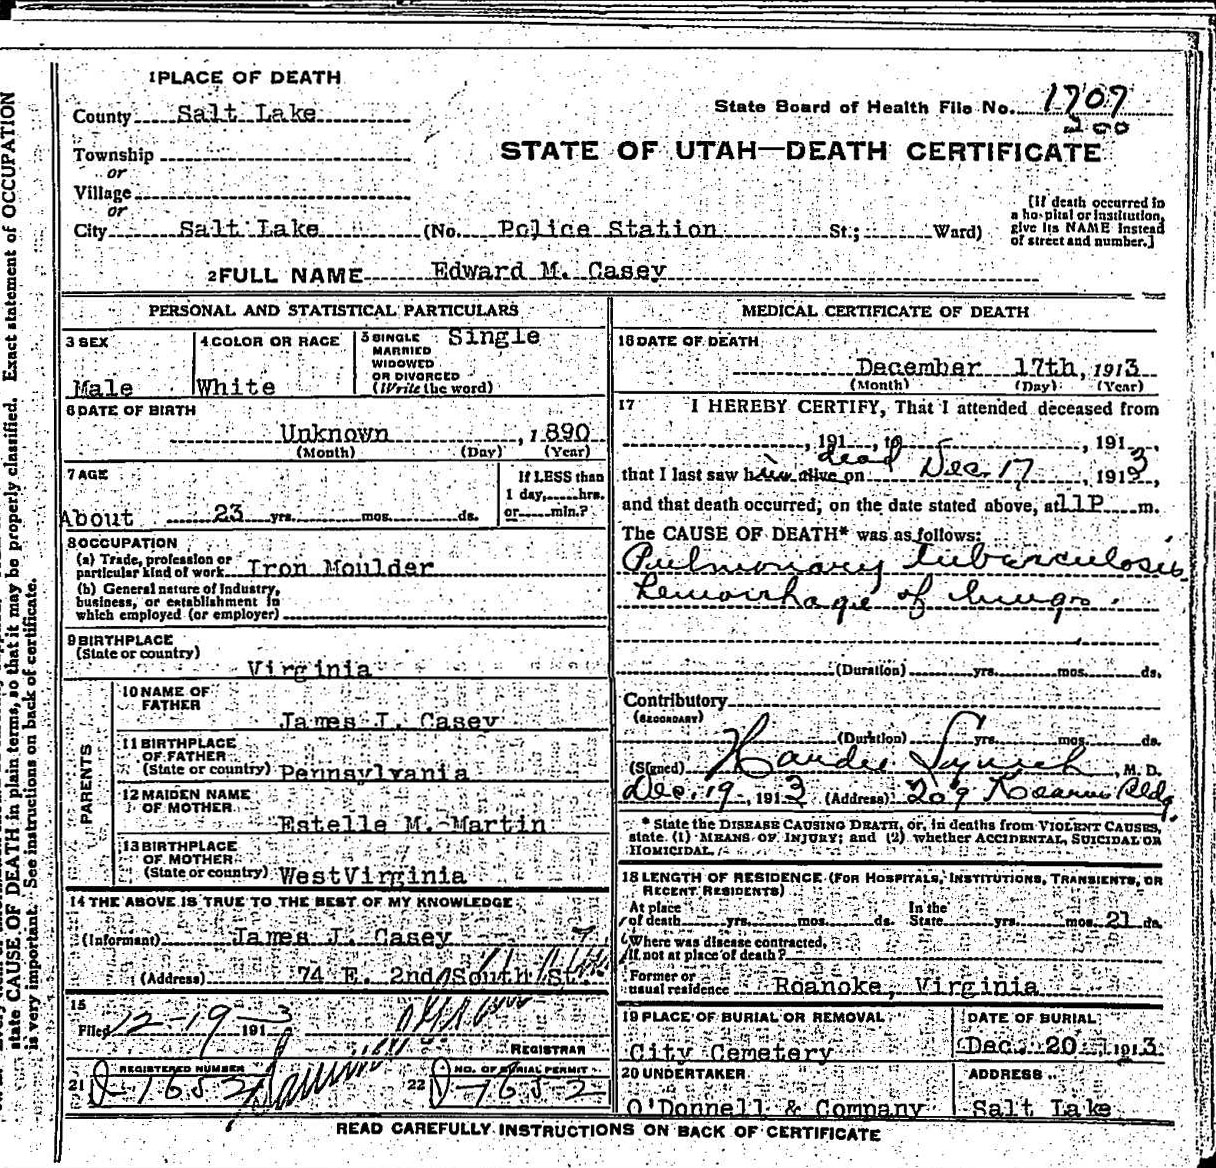 1 PLACE OF DEATH
County Salt Lake
State Board of Health File No. 1707
200
Township
or
STATE OF UTAH—DEATH CERTIFICATE
Village
or
City Salt Lake (No. Police Station St.; Ward)
[If death occurred in
a hospital or institution,
give its NAME instead
of street and number.]
2 FULL NAME Edward M. Casey
PERSONAL AND STATISTICAL PARTICULARS
3 SEX
Male
4 COLOR OR RACE
White
5 SINGLE
MARRIED
WIDOWED
OR DIVORCED
(Write the word)
Single
6 DATE OF BIRTH
Unknown, 1890
(Month) (Day) (Year)
7 AGE
About 23 yrs. mos. ds.
If LESS than
1 day, hrs.
or min.?
8 OCCUPATION
(a) Trade, profession or
particular kind of work Iron Moulder
(b) General nature of industry,
business, or establishment in
which employed (or employer)
9 BIRTHPLACE
(State or country)
Virginia
PARENTS
10 NAME OF
FATHER
James J. Casey
11 BIRTHPLACE
OF FATHER
(State or country) Pennsylvania
12 MAIDEN NAME
OF MOTHER
Estelle M. Martin
13 BIRTHPLACE
OF MOTHER
(State or country) WestVirginia
14 THE ABOVE IS TRUE TO THE BEST OF MY KNOWLEDGE
(Informant) James J. Casey
(Address) 74 E. 2nd South St.
15
Filed 12-19-3 191
REGISTRAR
21 REGISTERED NUMBER
22 NO. OF BURIAL PERMIT
MEDICAL CERTIFICATE OF DEATH
16 DATE OF DEATH
December 17th, 1913
(Month) (Day) (Year)
17 I HEREBY CERTIFY, That I attended deceased from
, 191 , to , 191 ,
that I last saw him alive on dead Dec. 17, 1913,
and that death occurred, on the date stated above, at 11P m.
The CAUSE OF DEATH* was as follows:
Pulmonary tuberculosis
hemorrhage of lungs.
(Duration) yrs. mos. ds.
Contributory
(SECONDARY)
(Duration) yrs. mos. ds.
(Signed) , M. D.
Dec. 19, 1913 (Address) 209 Bldg.
* State the DISEASE CAUSING DEATH, or, in deaths from VIOLENT CAUSES,
state (1) MEANS OF INJURY; and (2) whether ACCIDENTAL, SUICIDAL OR
HOMICIDAL.
18 LENGTH OF RESIDENCE (FOR HOSPITALS, INSTITUTIONS, TRANSIENTS, OR
RECENT RESIDENTS)
At place
of death yrs. mos. ds. In the
State yrs. mos. 21 ds.
Where was disease contracted,
If not at place of death?
Former or
usual residence Roanoke, Virginia
19 PLACE OF BURIAL OR REMOVAL
City Cemetery
DATE OF BURIAL
Dec. 20, 1913
20 UNDERTAKER
O'Donnell & Company
ADDRESS
Salt Lake
READ CAREFULLY INSTRUCTIONS ON BACK OF CERTIFICATE
state CAUSE OF DEATH in plain terms, so that it may be properly classified. Exact statement of OCCUPATION
is very important. See instructions on back of certificate.